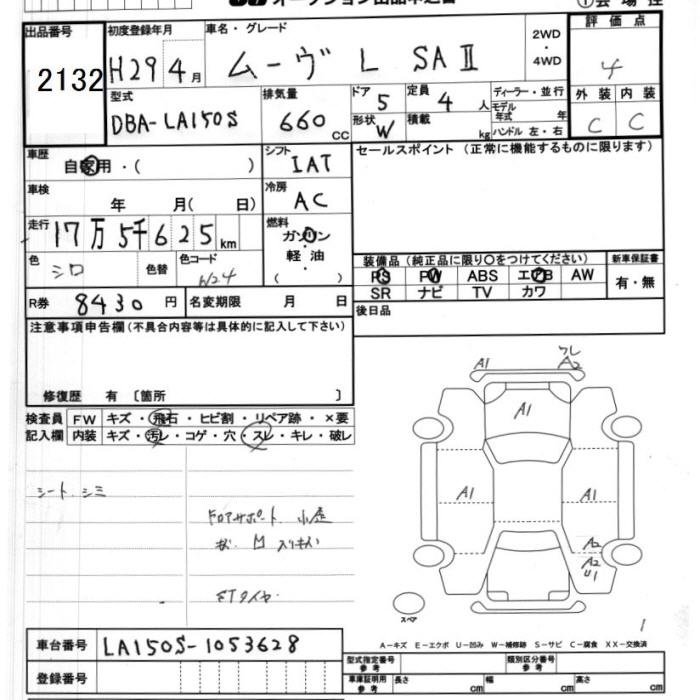 出品番号 初度登録年月 車名・グレード 2WD・4WD 評価点
2132 H29 4月 ムーヴ L SAⅡ 4
型式 排気量 ドア 5 定員 4人 ディーラー・並行 外装 内装
DBA-LA150S 660cc 形状 W 積載 kg モデル年式 年 ハンドル 左・右 C C
車歴 自家用・( ) シフト IAT セールスポイント (正常に機能するものに限ります)
車検 年 月( 日) 冷房 AC
走行 17万5千625km 燃料 ガソリン・軽油・( )
色 シロ 色替 色コード W24
装備品 (純正品に限り○をつけてください) 新車保証書
PS PW ABS エアB AW 有・無
SR ナビ TV カワ
R券 8430円 名変期限 月 日 後日品
注意事項申告欄(不具合内容等は具体的に記入して下さい)
修復歴 有 〔箇所 〕
検査員 FW キズ・飛石・ヒビ割・リペア跡・×要
記入欄 内装 キズ・汚レ・コゲ・穴・スレ・キレ・破レ
シート シミ
A1 A2
A1
A1 A1
A2
A2
U1
スペア
1
車台番号 LA150S-1053628
A-キズ E-エクボ U-凹み W-補修跡 S-サビ C-腐食 XX-交換済
登録番号
型式指定番号 参考 類別区分番号 参考
車庫証明用 参考 長さ cm 幅 cm 高さ cm